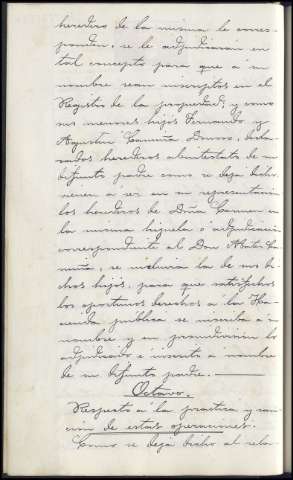 heredero de la misma le corres-
ponden, se le adjudicaran en
tal concepto para que a su
nombre sean inscriptos en el
Registro de la propiedad, y como
sus menores hijos Fernando y
Agustin Camuña Donoso, decla-
rados herederos abintestato de su
difunto padre como se deja dicho
vienen á ser en su representación
los herederos de Doña Carmen en
la misma hijuela ó adjudicación
correspondiente al Don Ca-
muña, se incluirá la de sus di-
chos hijos, para que satisfechos
los oportunos derechos a la Ha-
cienda pública se inscriba á su
nombre y en proindivisión lo
adjudicado é inscrito a nombre
de su difunto padre.
Octavo.
Respecto a la practica y san-
ción de estas operaciones.
Como se deja dicho al rela-